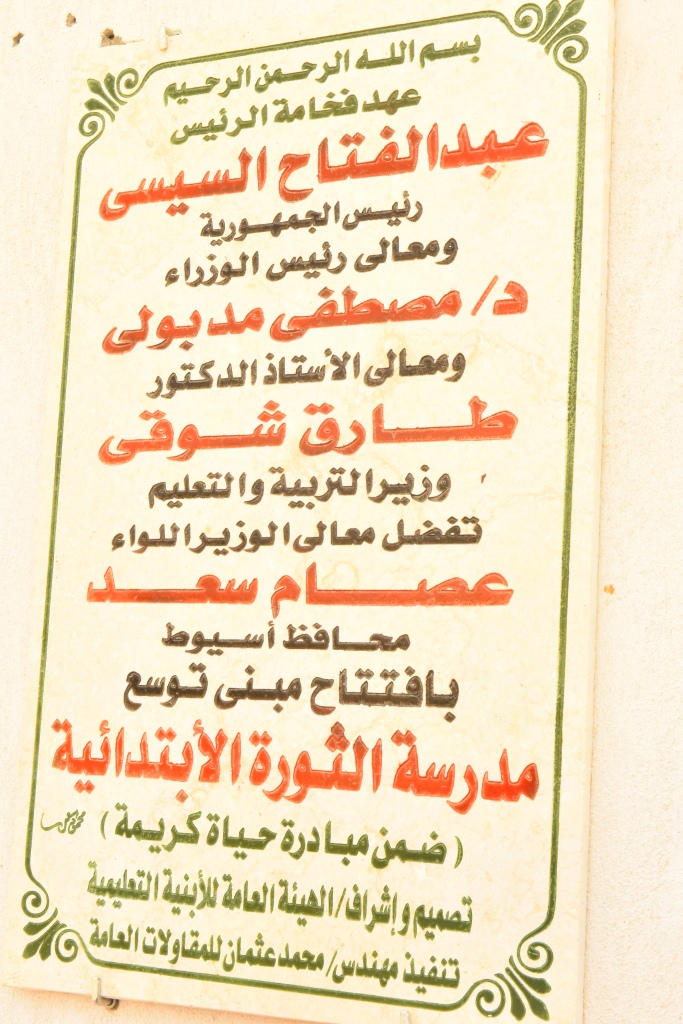 بسم الله الرحمن الرحيم
عهد فخامة الرئيس
عبدالفتاح السيسى
رئيس الجمهورية
ومعالى رئيس الوزراء
د/ مصطفى مدبولى
ومعالى الأستاذ الدكتور
طارق شوقى
وزير التربية والتعليم
تفضل معالى الوزير اللواء
عصام سعد
محافظ أسيوط
بافتتاح مبنى توسع
مدرسة الثورة الأبتدائية
( ضمن مبادرة حياة كريمة )
تصميم وإشراف/الهيئة العامة للأبنية التعليمية
تنفيذ مهندس/ محمد عثمان للمقاولات العامة